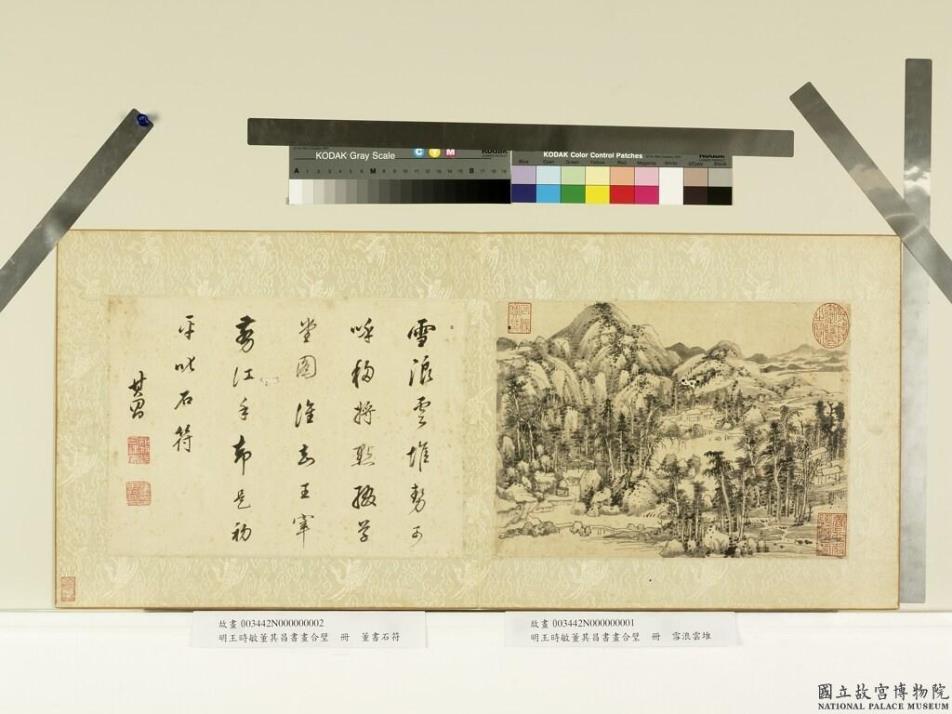 KODAK Gray Scale
C Y M
KODAK
A 1 2 3 4 5 6 M 8 9 10 11 12 13 14 15 B 17 18 19
KODAK Color Control Patches
Blue Cyan Green Yellow Red Magenta White 3/Color Black
雪浪雲堆勢可
呼移將點綴草
堂圖誰知王宰
剪江手却是初
平叱石符
其昌
故畫 003442N000000002
明王時敏董其昌書畫合璧 冊 董書石符
故畫 003442N000000001
明王時敏董其昌書畫合璧 冊 雪浪雲堆
國立故宮博物院
NATIONAL PALACE MUSEUM